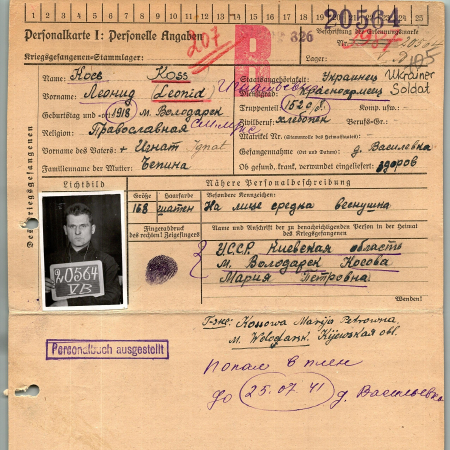 1 2 3 4 5 6 7 8 9 10 11 12 13 14 15 16 17 18 19 20 21 22 23 24 25
20564
Personalkarte I: Personelle Angaben
Beschriftung der Erkennungsmarke
207
326
Nr.
Kriegsgefangenen-Stammlager:
Lager:
Name: Косв Koss
Staatsangehörigkeit: Украинец
Ukrainer
Vorname: Леонид Leonid
Dienstgrad: Красноармеец
Soldat
Geburtstag und -ort 1918 м. Володарск
Truppenteil: 1520 Komp. usw.:
Religion: Православная
Zivilberuf: Berufs-Gr.:
Matrikel Nr. (Stammrolle des Heimatstaates):
Vorname des Vaters: Игнат Ignat
Gefangennahme (Ort und Datum): д. Василевка
Familienname der Mutter: Бепина
Ob gesund, krank, verwundet eingeliefert: здоров
Des Kriegsgefangenen
Lichtbild
Nähere Personalbeschreibung
Größe
Haarfarbe
Besondere Kennzeichen:
168
шатен
На лице средна веснушна
Fingerabdruck
des rechten Zeigefingers
Name und Anschrift der zu benachrichtigenden Person in der Heimat
des Kriegsgefangenen
У.С.С.Р. Киевская область
м. Володарск Косова
Мария Петровна
20564
VB
Wenden!
Kossowa Marija Petrowna
M. Wolodarsk. Kijewskaja obl.
Personalbuch ausgestellt
Попал в плен
до 25.07.41 д. Васильевка